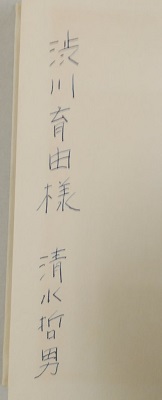 渋川育由様 清水哲男